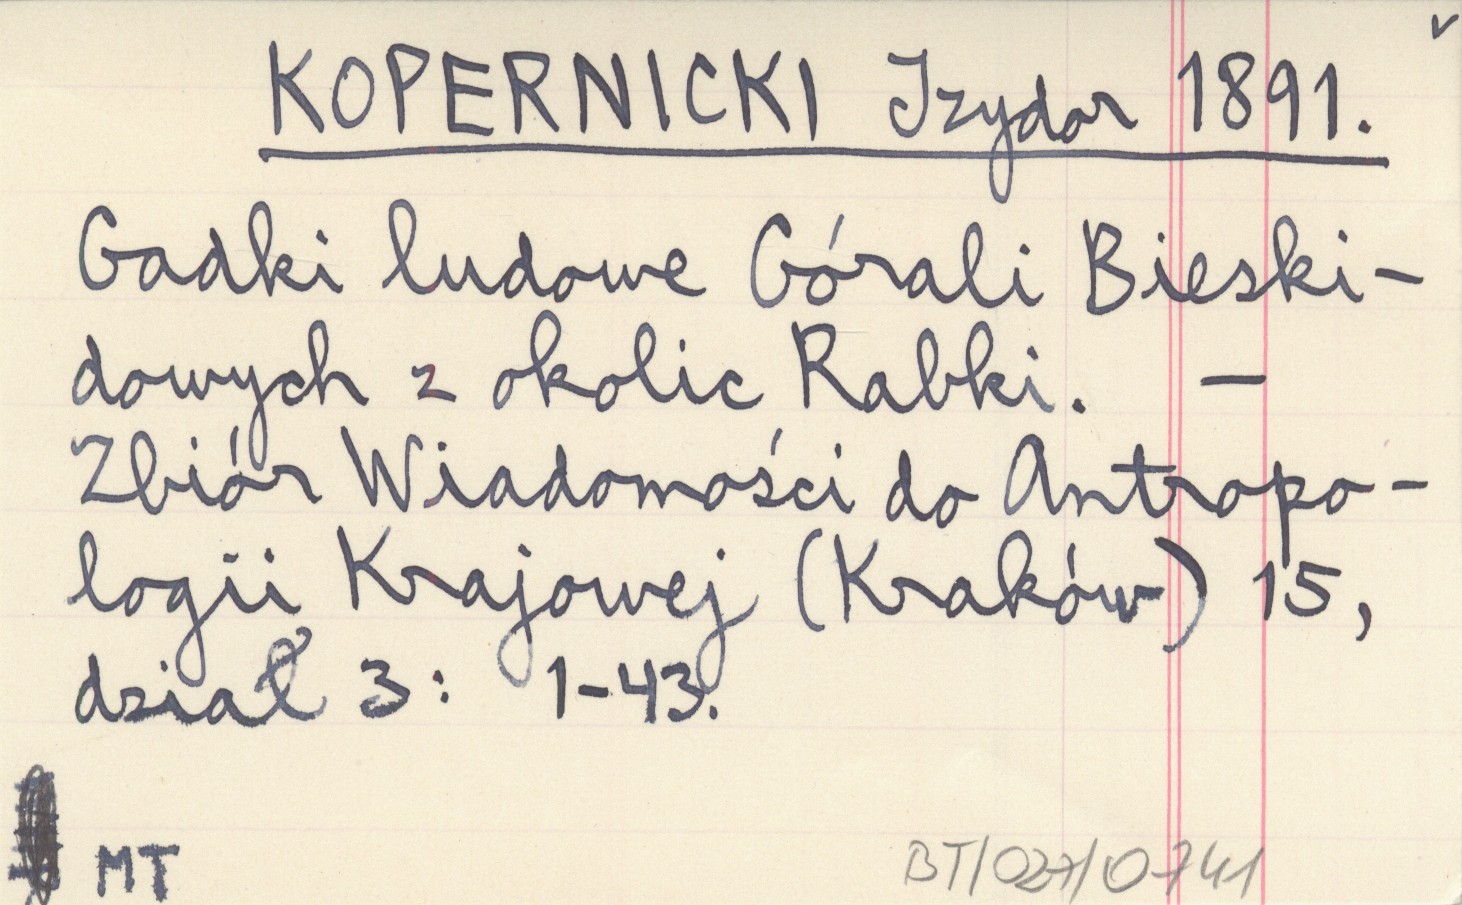 KOPERNICKI Izydor 1891.
Gadki ludowe Górali Bieski-
dowych z okolic Rabki. —
Zbiór Wiadomości do Antropo-
logii Krajowej (Kraków) 15,
dział 3: 1-43.
MT
BT/027/0741